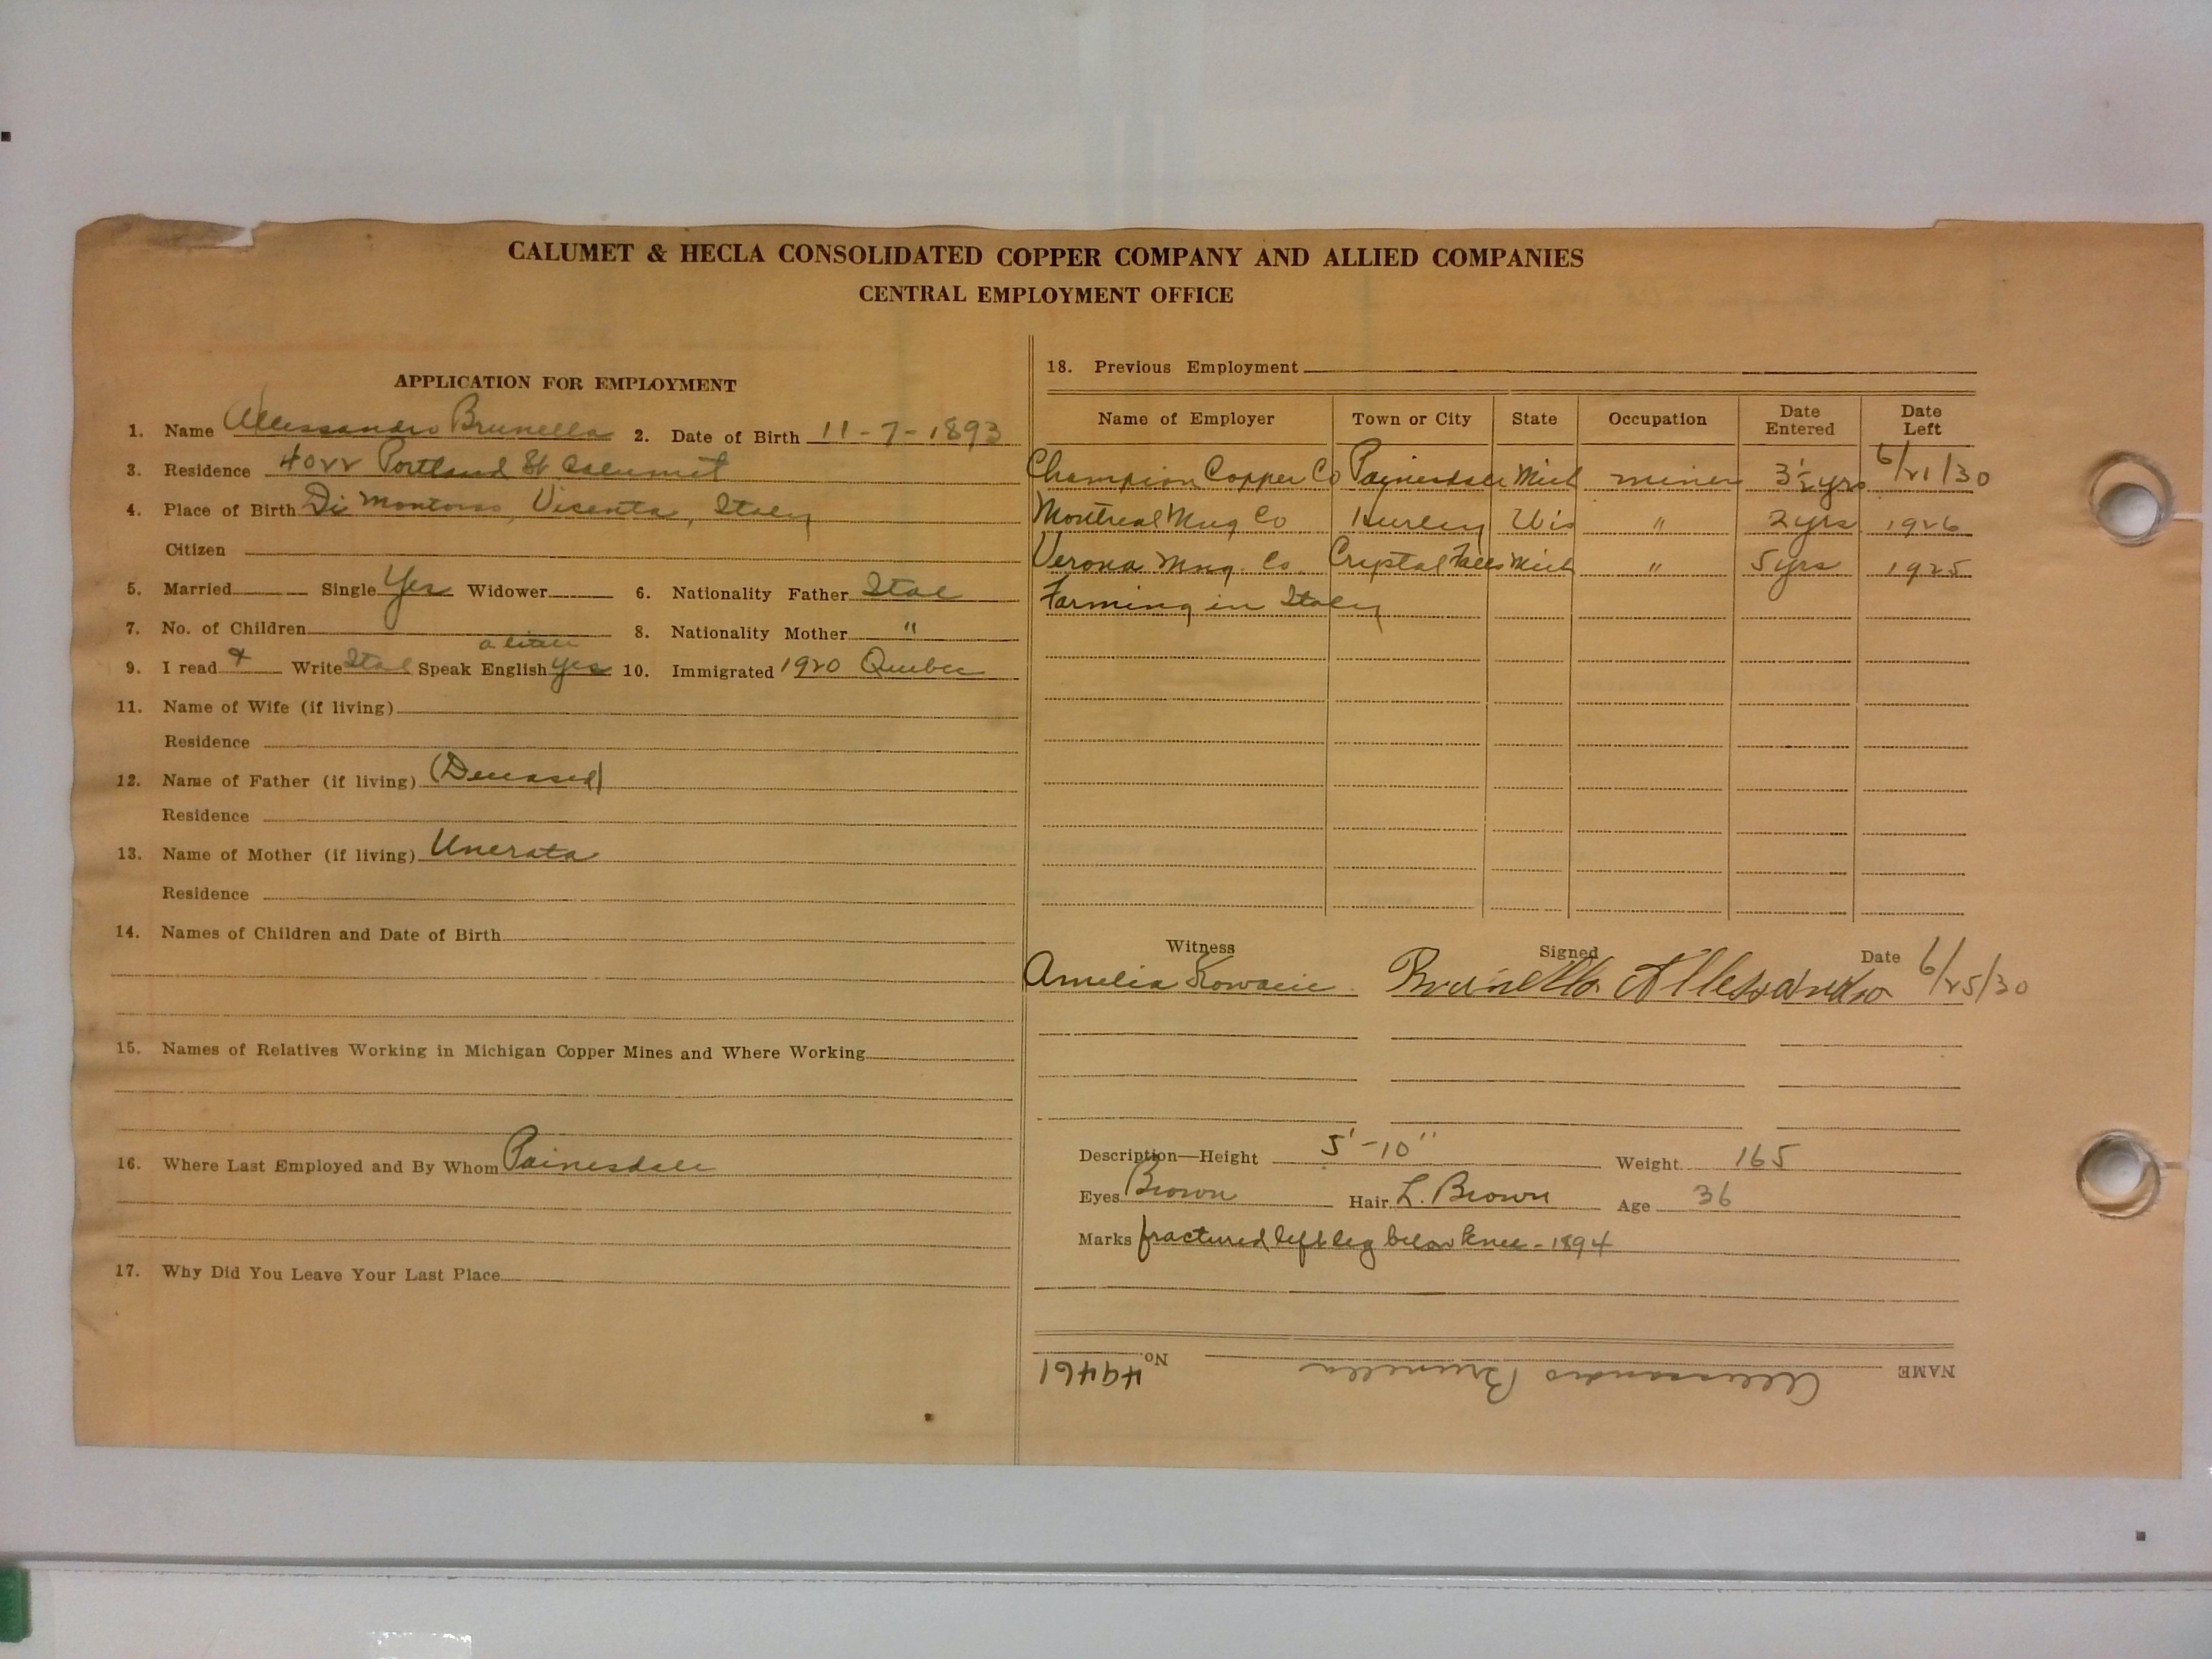 CALUMET & HECLA CONSOLIDATED COPPER COMPANY AND ALLIED COMPANIES
CENTRAL EMPLOYMENT OFFICE
APPLICATION FOR EMPLOYMENT
1. Name Allessandro Brunella 2. Date of Birth 11-7-1893
3. Residence 4022 Portland St Calumet
4. Place of Birth Di Vicenta, Italy
Citizen
5. Married Single Yes Widower 6. Nationality Father Ital
7. No. of Children 8. Nationality Mother "
a little
9. I read & Write Ital Speak English Yes 10. Immigrated 1920 Quebec
11. Name of Wife (if living)
Residence
12. Name of Father (if living) (Deceased)
Residence
13. Name of Mother (if living) Unerata
Residence
14. Names of Children and Date of Birth
15. Names of Relatives Working in Michigan Copper Mines and Where Working
16. Where Last Employed and By Whom Painesdale
17. Why Did You Leave Your Last Place
18. Previous Employment
Name of Employer Town or City State Occupation Date Entered Date Left
Champion Copper Co Painesdale Mich miner 3 1/2 yrs 6/21/30
Montreal Mng Co Hurley Wis " 2 yrs 1926
Verona Mng. Co. Crystal Falls Mich " 5 yrs 1925
Farming in Italy
Witness Signed Date
Amelia Brunella Allessandro 6/25/30
Description—Height 5'-10" Weight 165
Eyes Brown Hair L. Brown Age 36
Marks fractured left leg below knee - 1894
NAME Allessandro Brunella No. 49461